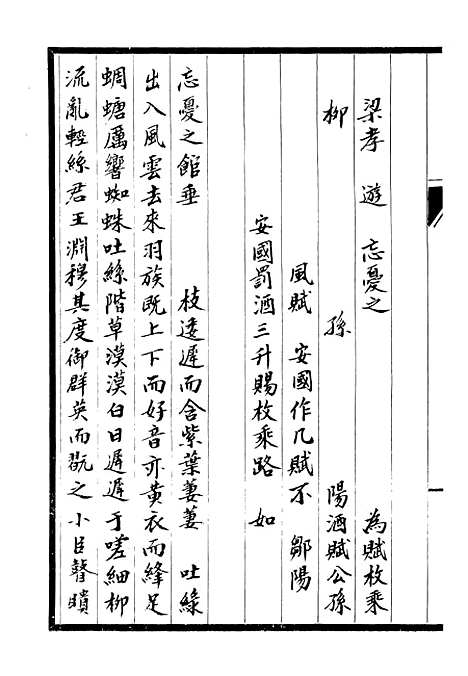 梁孝 遊 忘憂之 為賦枚乘
柳 孫 陽酒賦公孫
風賦 安國作几賦不 鄒陽
安國罰酒三升賜枚乘路 如
忘憂之館垂 枝逶遲而含紫葉萋萋 吐綠
出入風雲去來羽族既上下而好音亦黃衣而絳足
蜩螗厲響蜘蛛吐絲階草漠漠白日遲遲于嗟細柳
流亂輕絲君王淵穆其度御群英而翫之小臣瞽聵